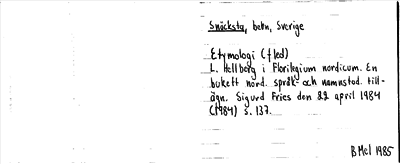 Snäcksta, betn, Sverige
Etymologi (fled)
L. Hellberg i Florilegium nordicum. En
bukett nord. språk- och namnstud. till-
ägn. Sigurd Fries den 22 april 1984
(1984) s. 137.
B Mel 1985